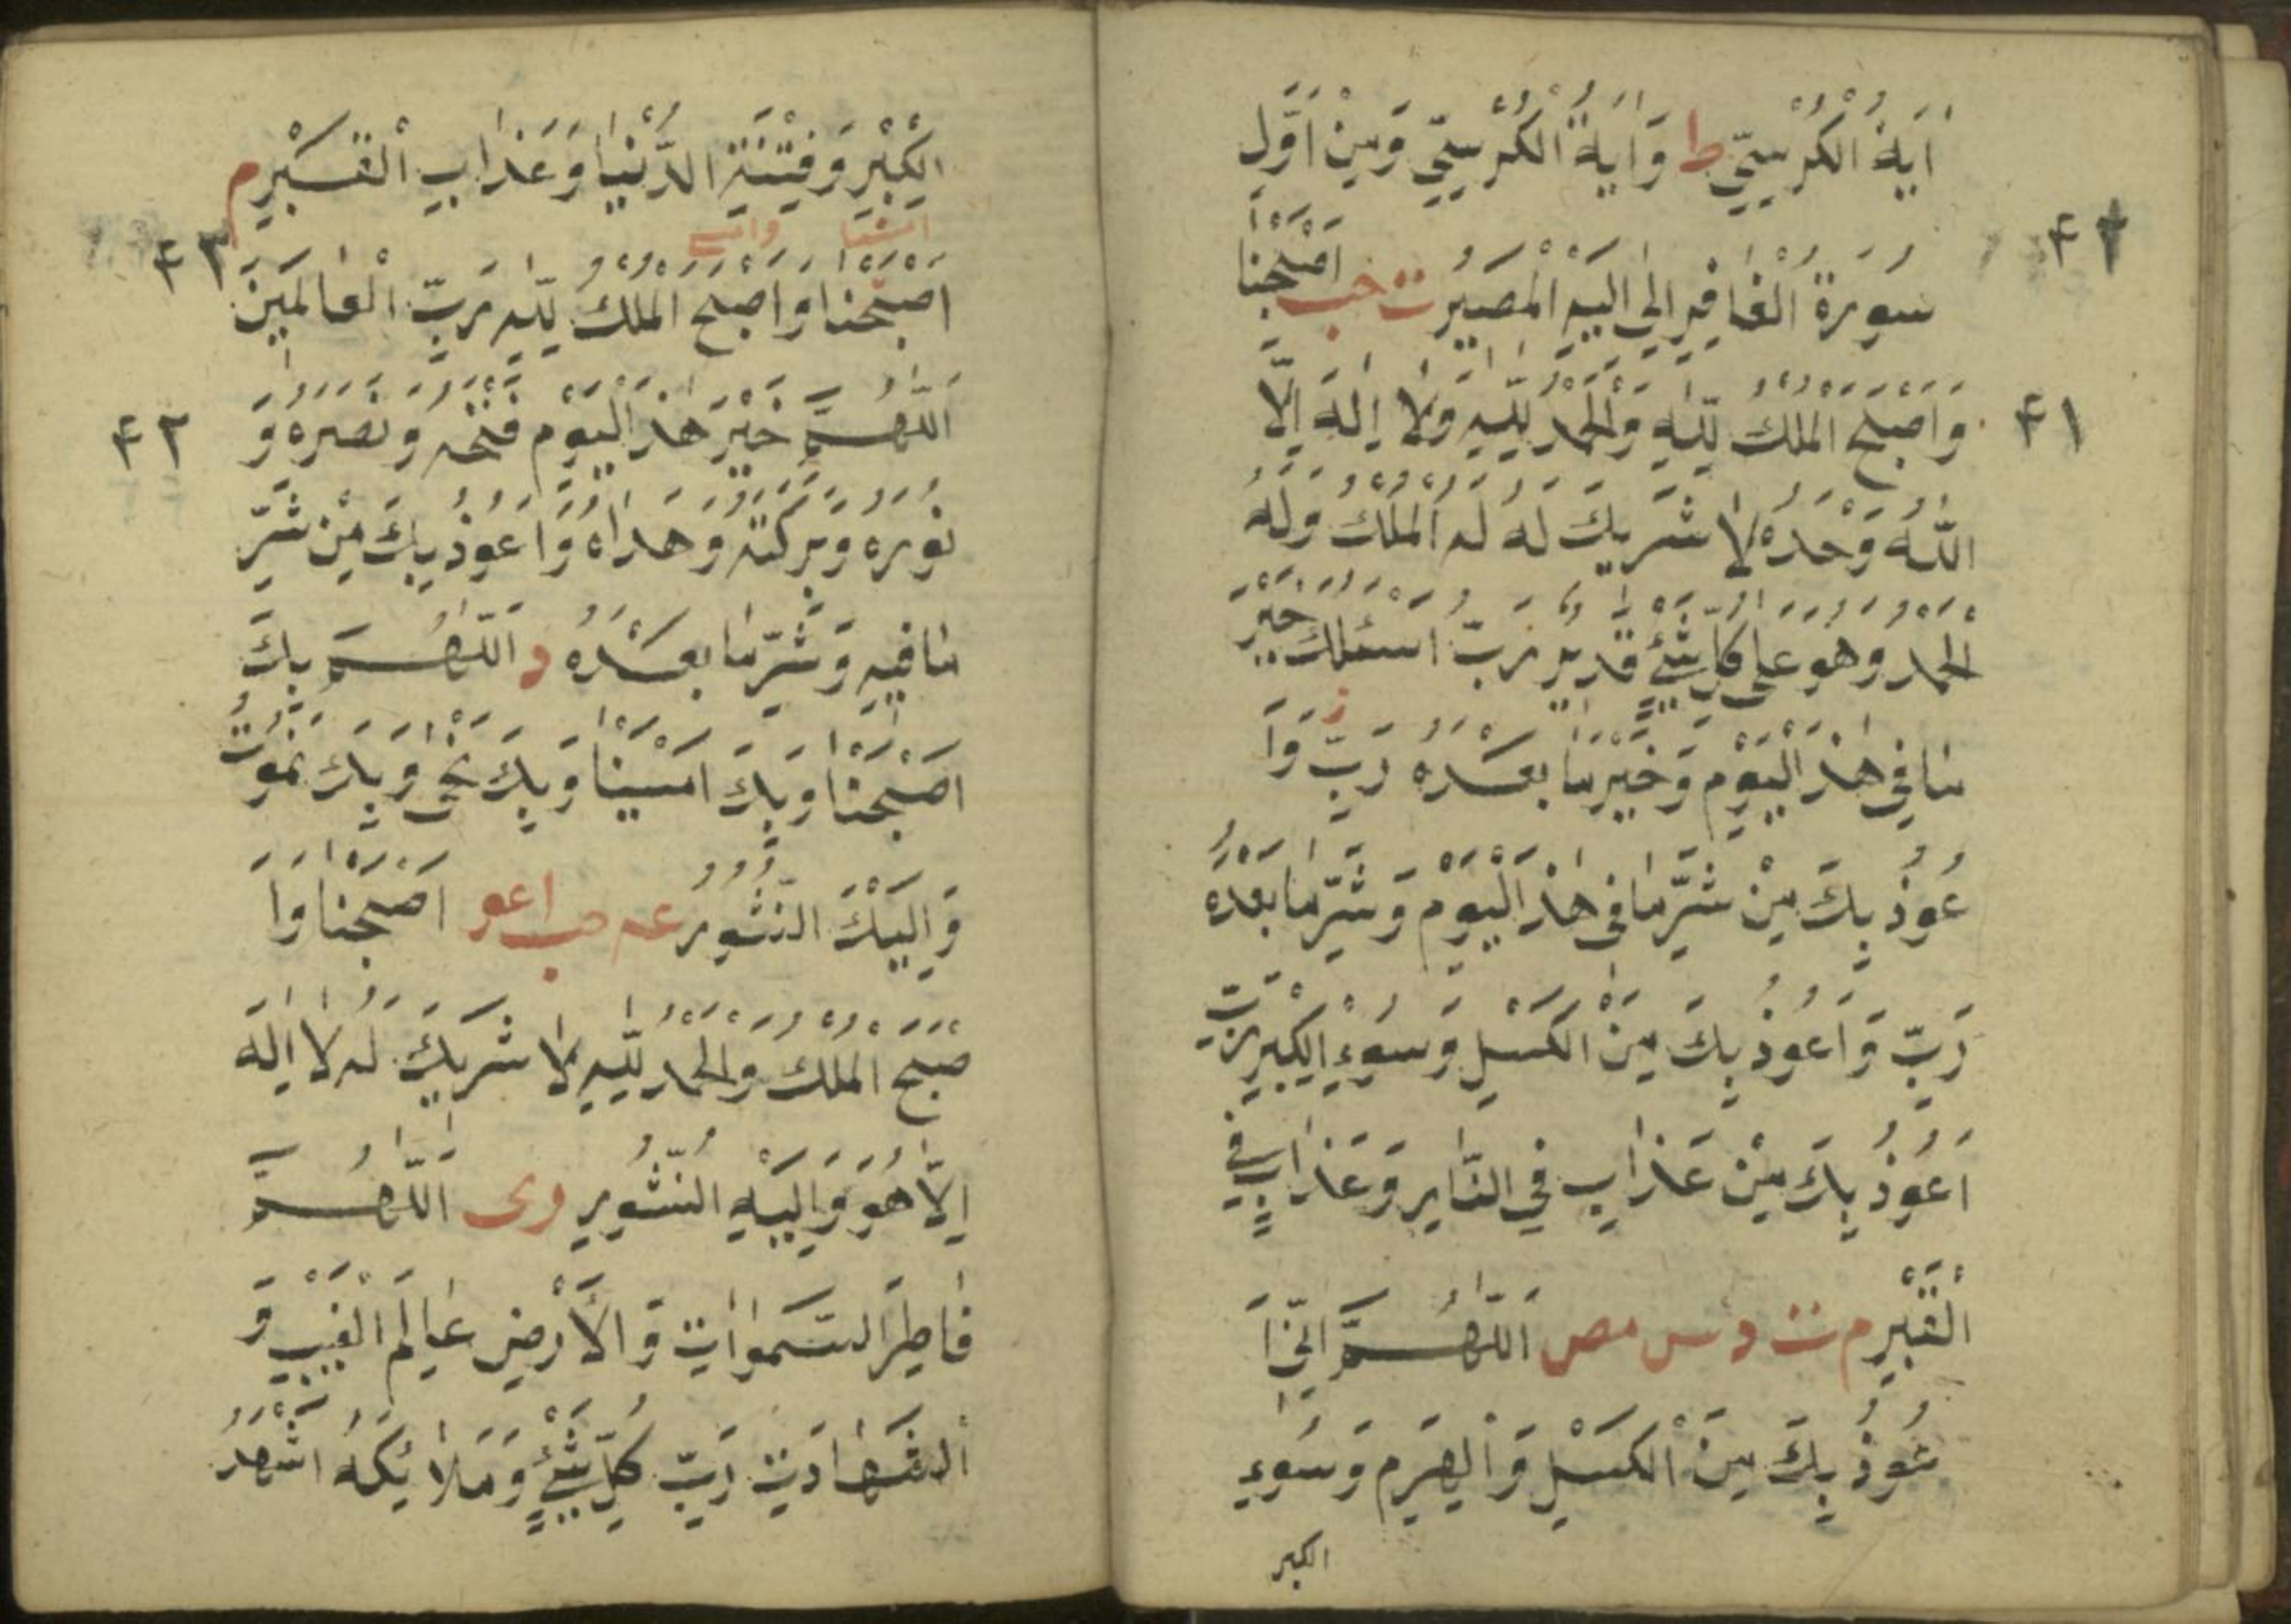 اٰيَةُ الْكُرْسِيِّ ط وَاٰيَةُ الْكُرْسِيِّ وَمِنْ اَوَّلِ
سُورَةُ الْغَافِرِ اِلٰى اِلَيْهِ الْمَصِيرُ ت حب اَصْبَحْنَا
٤٢
وَاَصْبَحَ الْمُلْكُ لِلّٰهِ وَالْحَمْدُ لِلّٰهِ وَلَا اِلٰهَ اِلَّا
٤١
اللّٰهُ وَحْدَهُ لَا شَرِيكَ لَهُ لَهُ الْمُلْكُ وَلَهُ
الْحَمْدُ وَهُوَ عَلٰى كُلِّ شَيْءٍ قَدِيرٌ رَبِّ اَسْئَلُكَ خَيْرَ
مَا فِي هٰذَ الْيَوْمِ وَخَيْرَ مَا بَعْدَهُ رَبِّ وَاَ
عُوذُ بِكَ مِنْ شَرِّ مَا فِي هٰذَ الْيَوْمِ وَشَرِّ مَا بَعْدَهُ
رَبِّ وَاَعُوذُ بِكَ مِنَ الْكَسَلِ وَسُوءِ الْكِبَرِ رَبِّ
اَعُوذُ بِكَ مِنْ عَذَابٍ فِي النَّارِ وَعَذَابٍ فِي
الْقَبْرِ م ت د س مص اَللّٰهُمَّ اِنِّي اَ
عُوذُ بِكَ مِنَ الْكَسَلِ وَالْهَرَمِ وَسُوءِ
الكبر
الْكِبَرِ وَفِتْنَةِ الدُّنْيَا وَعَذَابِ الْقَبْرِ م
امسينا وامسى
اَصْبَحْنَا وَاَصْبَحَ الْمُلْكُ لِلّٰهِ رَبِّ الْعَالَمِينَ
٤٣
اَللّٰهُمَّ خَيْرَ هٰذَ الْيَوْمِ فَتْحَهُ وَنَصْرَهُ وَ
٤٢
نُورَهُ وَبَرَكَتَهُ وَهُدَاهُ وَاَعُوذُ بِكَ مِنْ شَرِّ
مَا فِيهِ وَشَرِّ مَا بَعْدَهُ د اَللّٰهُمَّ بِكَ
اَصْبَحْنَا وَبِكَ اَمْسَيْنَا وَبِكَ نَحْيٰ وَبِكَ نَمُوتُ
وَاِلَيْكَ النُّشُورُ عه حب اعو اَصْبَحْنَا وَاَ
صْبَحَ الْمُلْكُ وَالْحَمْدُ لِلّٰهِ لَا شَرِيكَ لَهُ لَا اِلٰهَ
اِلَّا هُوَ وَاِلَيْهِ النُّشُورِ رى اَللّٰهُمَّ
فَاطِرَ السَّمٰوَاتِ وَالْاَرْضِ عَالِمَ الْغَيْبِ وَ
الشَّهَادَتِ رَبِّ كُلِّ شَيْءٍ وَمَلَائِكَهُ اَشْهَدُ